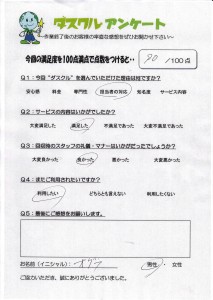 ダスクル アンケート
～作業終了後のお客様の率直な感想をぜひお聞かせ下さい～
今回の満足度を100点満点で点数をつけると・・ 90 /100点
Q1：今回“ダスクル”を選んでいただけた理由は何ですか？
安心感 料金 専門性 担当者の対応 知名度 サービス内容
Q2：サービスの内容はいかがでしたか？
大変満足した 満足した 不満足であった 大変不満足であった
Q3：訪問時のスタッフの礼儀・マナーはいかがだったでしょうか？
大変良かった 良かった 悪かった 大変悪かった
Q4：またご利用されたいですか？
利用したい どちらとも言えない 利用したくない
Q5：最後にご感想をお願いします。
お名前（イニシャル）：
男性・女性
ご協力いただき、誠にありがとうございました。